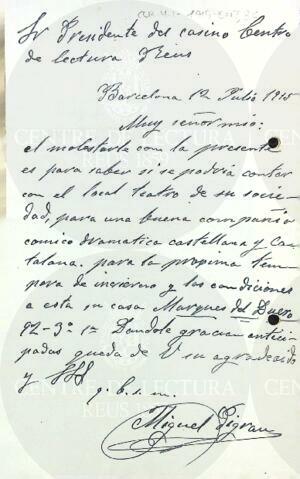 Sr Presidente del casino Centro
de lectura Reus
Barcelona 12 Julio 1915
Muy señor mio:
el molestarle con la presente
es para saber si se podria contar
con el local teatro de su socie-
dad, para una buena compañia
comico dramatica castellana y Ca-
talana. para la proxima tem
porada de invierno y las condiciones
a esta su casa Marques del Duero
92-3º 1ª Dandole gracias antici-
padas queda de V su agradecido
y SSS
q. b. s. m.
Miguel
CENTRE DE LECTURA
REUS 1859